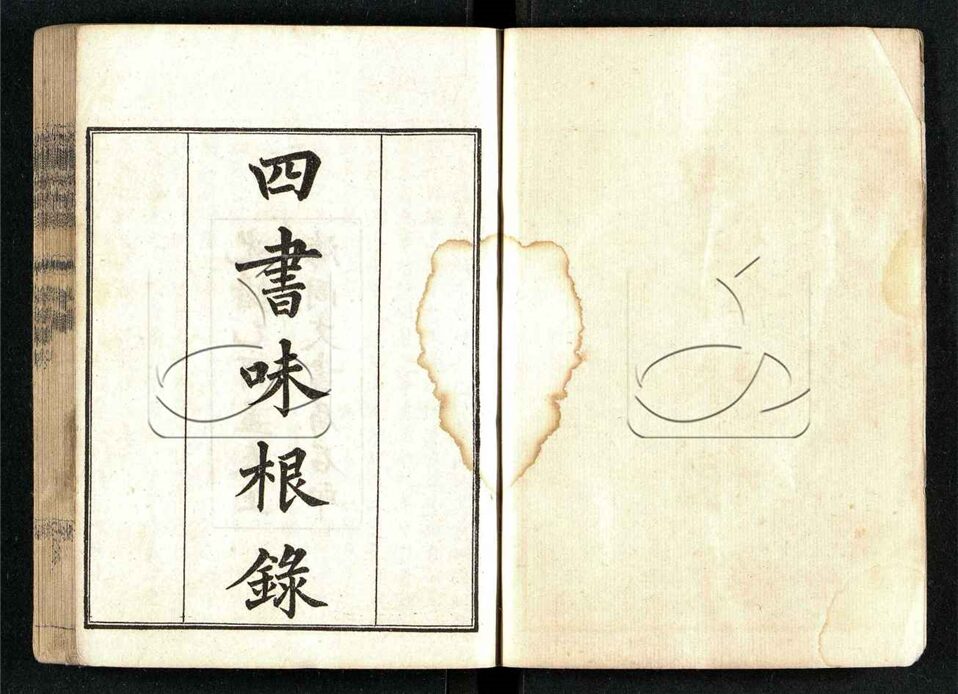 四書味根錄